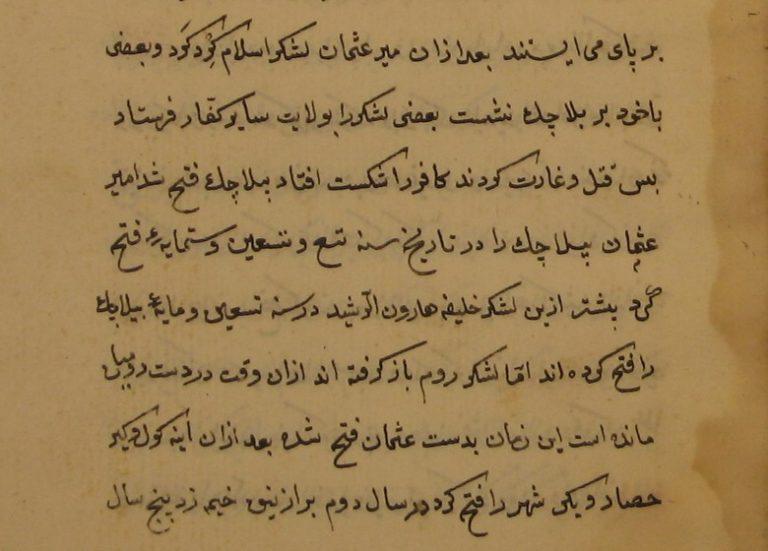 بر پای می ایستند بعد از ان میر عثمان لشکر اسلام گِرد کَرد و بعضی
با خود بر بلا چک نشست بعضی لشکر را بولایت سایر کفّار فرستاد
بس قتل و غارت کردند کافر را شکست افتاد بیلا چک فتح شد امیر
عثمان بیلا چک را در تاریخ سنه تسع و تسعین و ستمایهٔ فتح
کرد بیشتر ازین لشکر خلیفه هارون الرّشید در سنه تسعین و مایهٔ بیلاچک
را فتح کرده اند امّا لشکر روم باز گرفته اند ازان وقت در دست رومیان
مانده است این زمان بدست عثمان فتح شده بعد ازان اینه کول و کپر
حصار و یکی شهر را فتح کرد در سال دوم بر ازنیق خیمه زد پنج سال